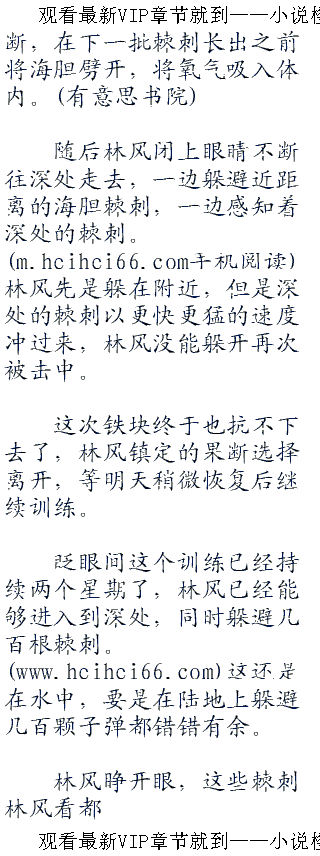 观看最新VIP章节就到——小说检
断，在下一批棘刺长出之前
将海胆劈开，将氧气吸入体
内。(有意思书院)
随后林风闭上眼睛不断
往深处走去，一边躲避近距
离的海胆棘刺，一边感知着
深处的棘刺。
(m.hcihci66.com手机阅读)
林风先是躲在附近，但是深
处的棘刺以更快更猛的速度
冲过来，林风没能躲开再次
被击中。
这次铁块终于也抗不下
去了，林风镇定的果断选择
离开，等明天稍微恢复后继
续训练。
眨眼间这个训练已经持
续两个星期了，林风已经能
够进入到深处，同时躲避几
百根棘刺。
(www.hcihci66.com)这还是
在水中，要是在陆地上躲避
几百颗子弹都错错有余。
林风睁开眼，这些棘刺
林风看都
观看最新VIP章节就到——小说检